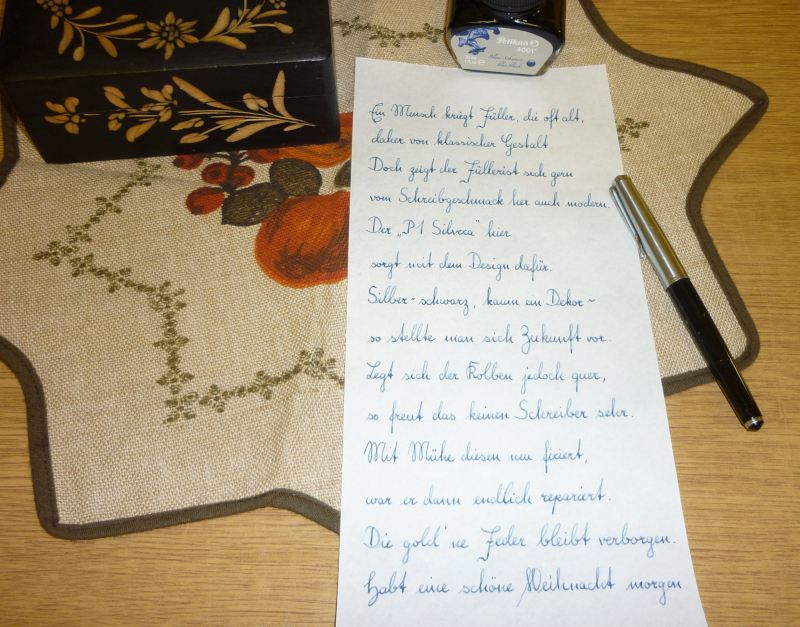 Pelikan
4001
Ein Mensch kriegt Füller, die oft alt,
daher von klassischer Gestalt.
Doch zeigt der Füllerist sich gern
vom Schreibgeschmack her auch modern.
Der „P1 Silvexa" hier
sorgt mit dem Design dafür.
Silber-schwarz, kaum ein Dekor~
so stellte man sich Zukunft vor.
Legt sich der Kolben jedoch quer,
so freut das keinen Schreiber sehr.
Mit Mühe diesen neu fixiert,
war er dann endlich repariert.
Die gold'ne Feder bleibt verborgen.
Habt eine schöne Weihnacht morgen.